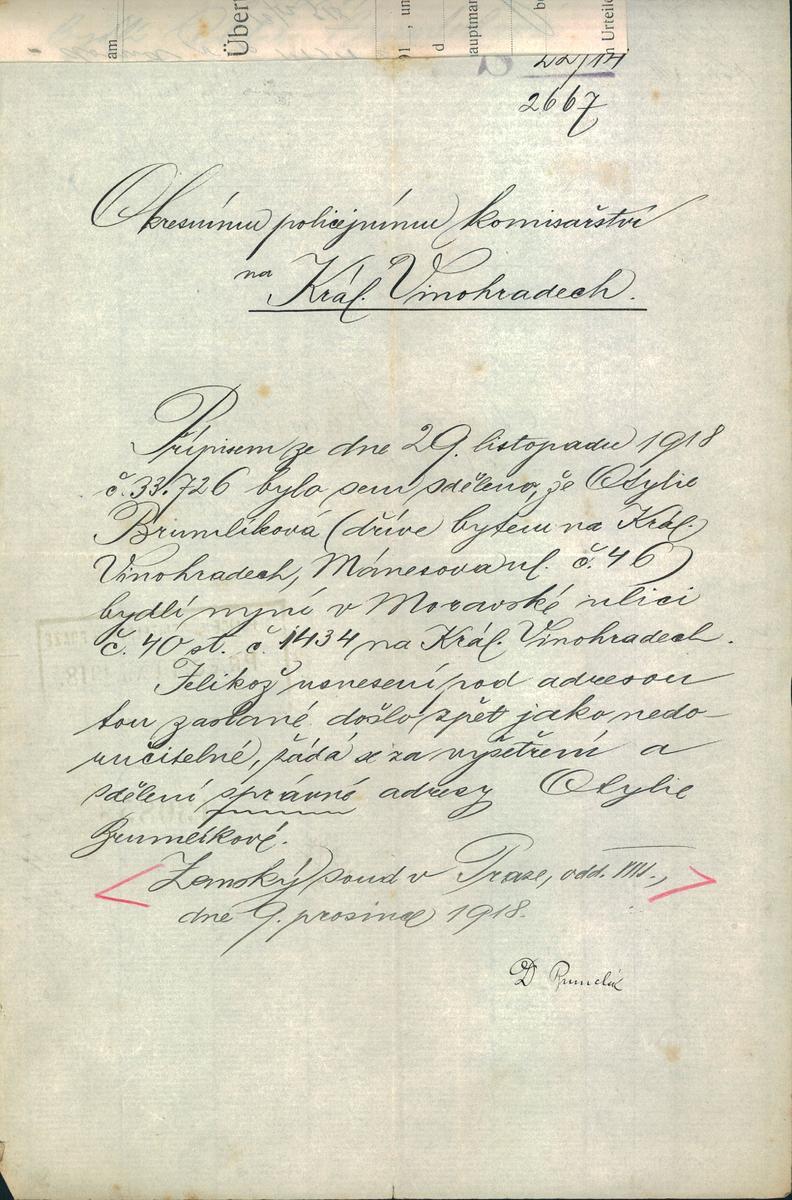 am
Über
91 , un
d
auptman
b
n Urteile
22/14
2667
Okresnímu policejnímu komisařství
na Král. Vinohradech.
Přípisem ze dne 29. listopadu 1918
č. 33.726 bylo sem sděleno, že Otylie
Brumlíková (dříve bytem na Král.
Vinohradech, Mánesova ul. č. 46)
bydlí nyní v Moravské ulici
č. 40 st. č. 1434 na Král. Vinohradech.
Jelikož usnesení pod adresou
tou zaslané došlo zpět jako nedo-
ručitelné, žádá se za vyšetření a
sdělení správné adresy Otylie
Brumlíkové.
Zemský soud v Praze, odd. VIII.,
dne 9. prosince 1918.